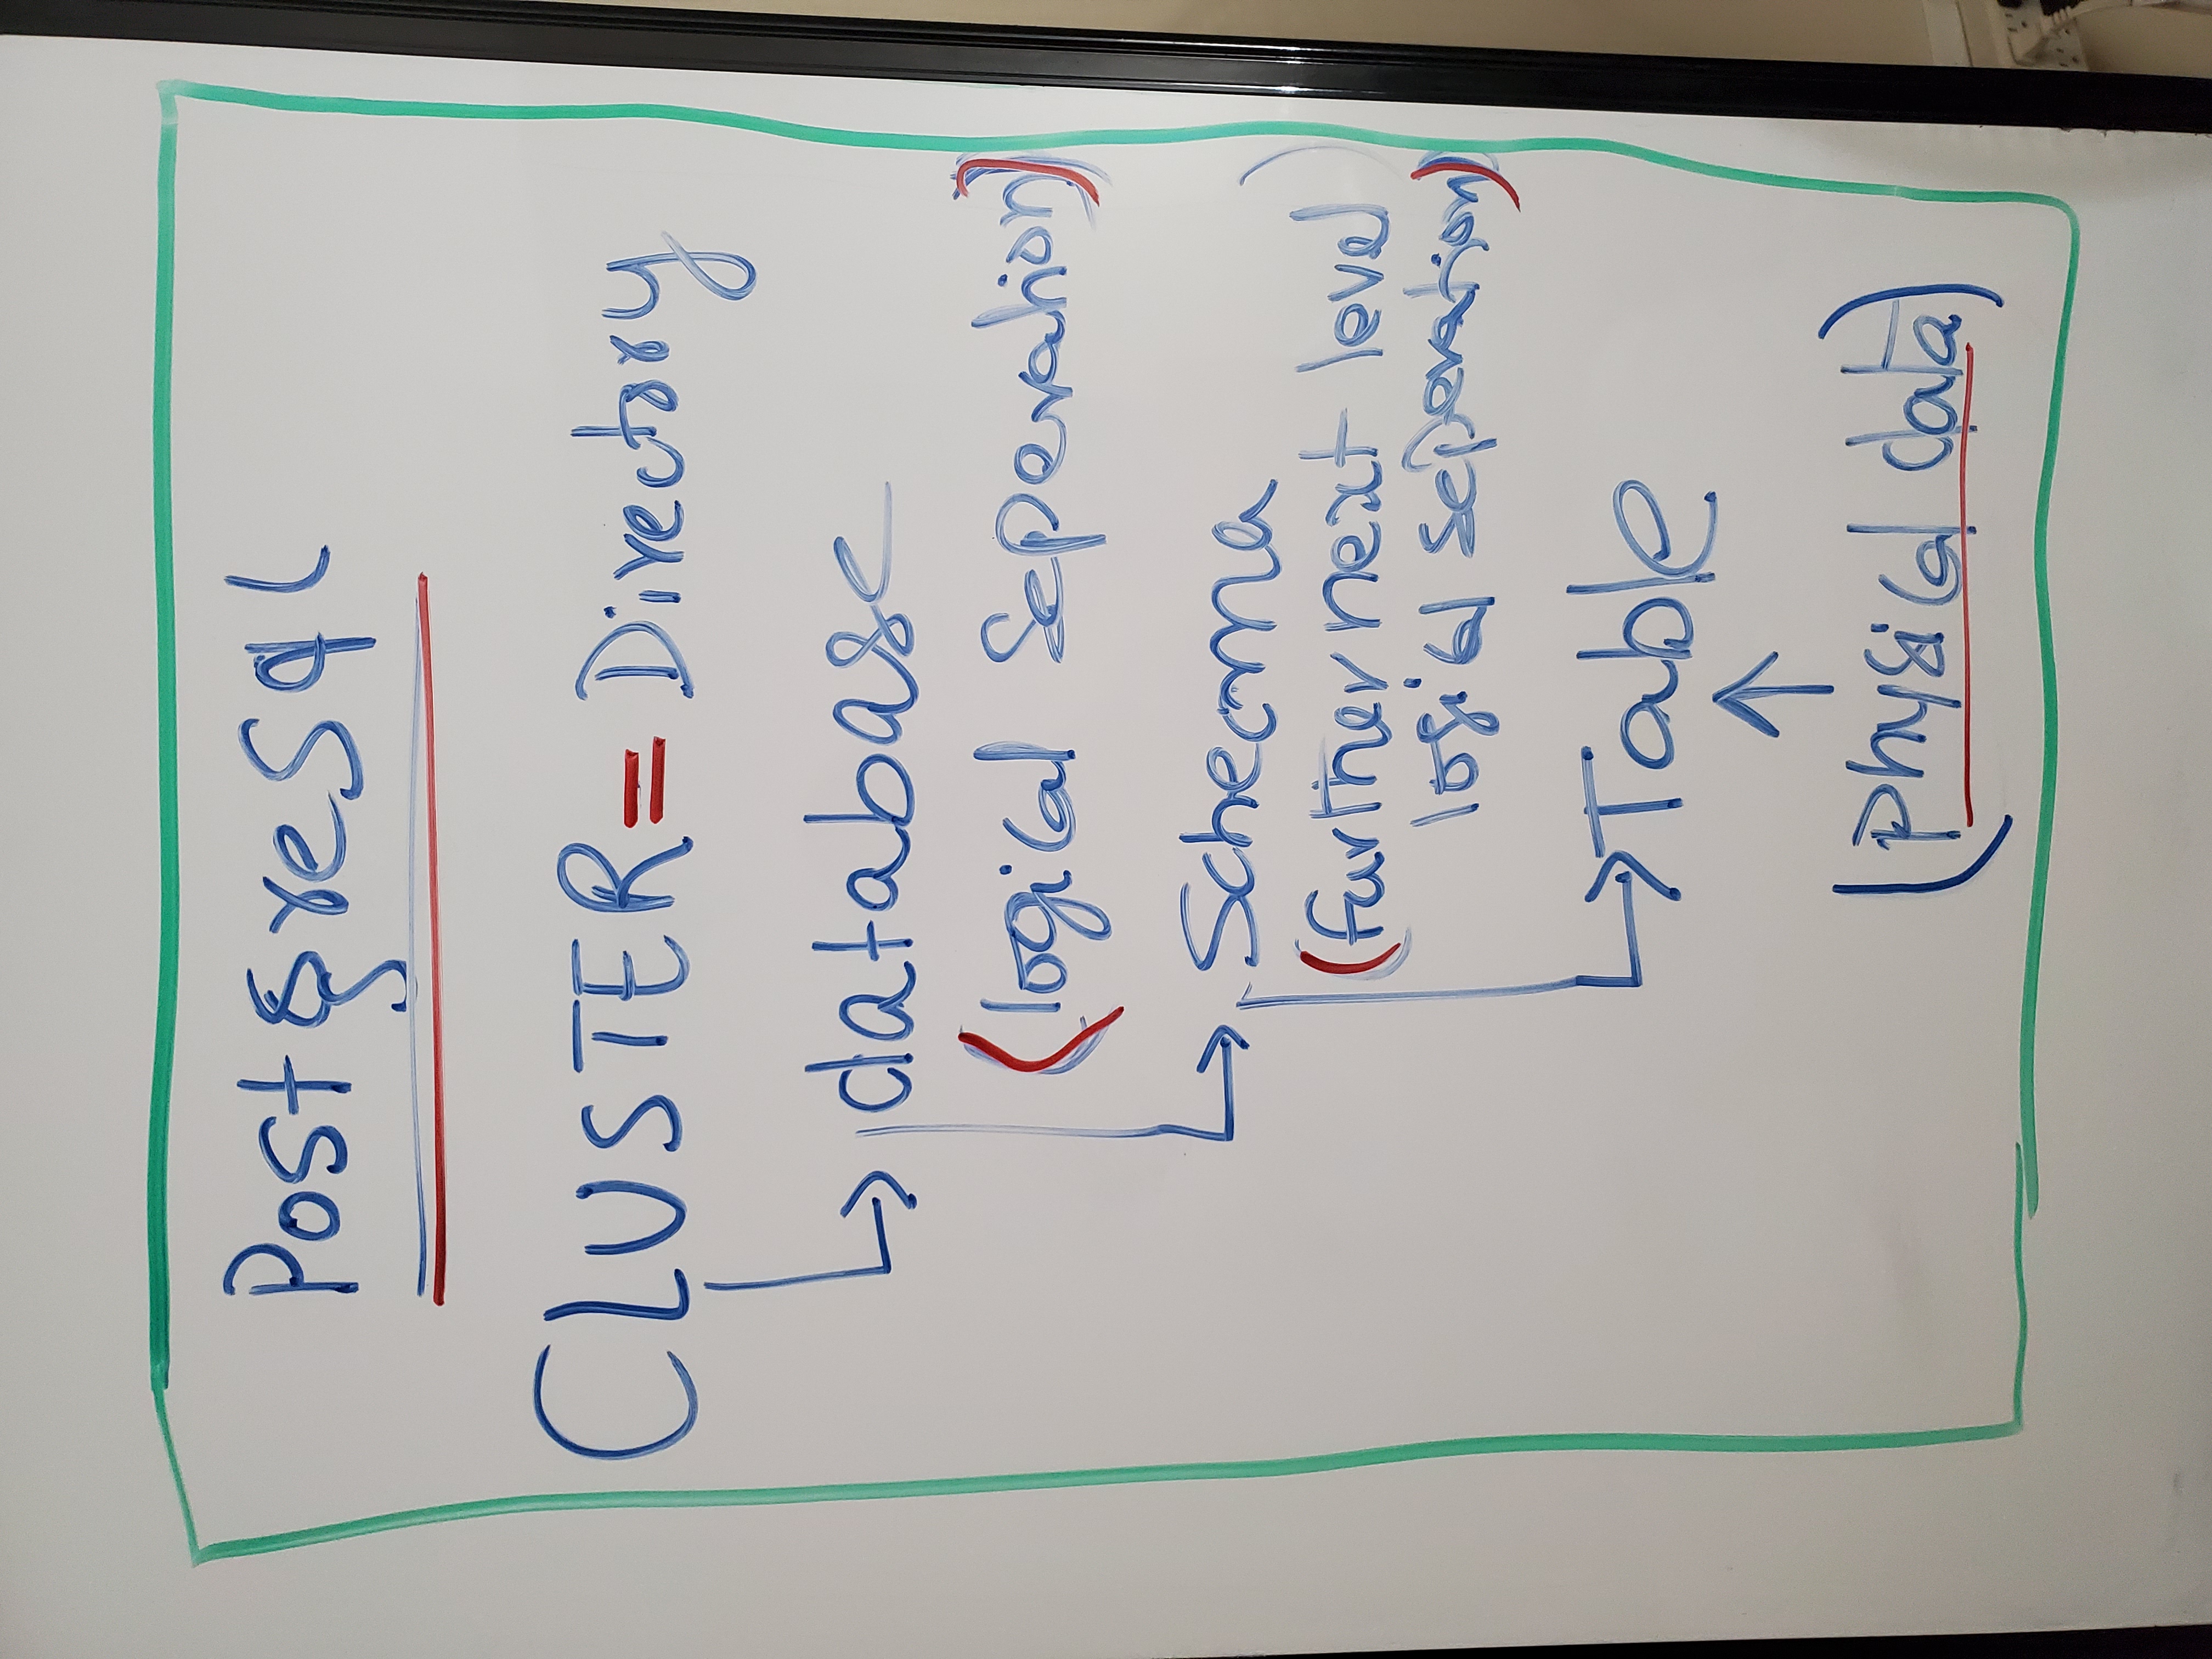 PostgreSql
CLUSTER = Directory
database
(logical Seperation)
Schema
(further next level
logical seperation)
Table
(physical data)